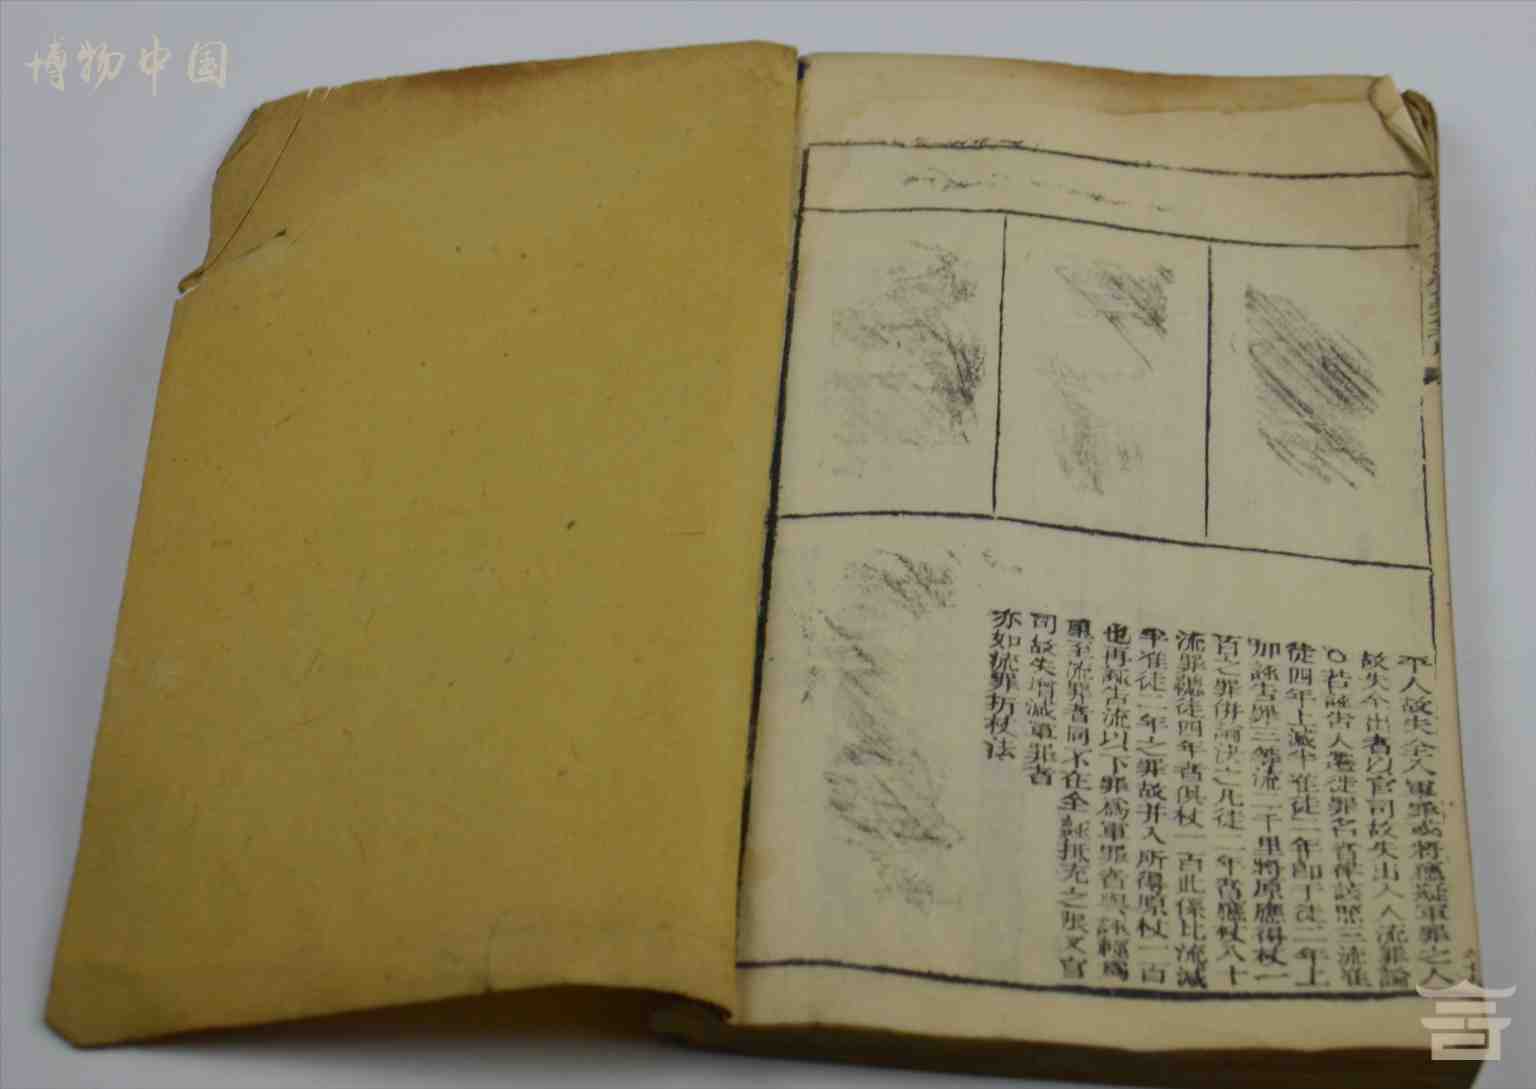 博物中国
平人故失全入軍罪或將應擬軍罪之人
故失全出者以官司故失出入人流罪論
〇若誣告人遷徒罪名者准誣照三流准
徒四年上減半准徒二年即于徒二年上
加誣告罪三等流二千里將原應得杖一
百之罪併論決之凡徒二年者應杖八十
流罪總徒四年者俱杖一百此係比流減
半准徒二年之罪故并入所得原杖一百
也再誣告流以下罪爲軍罪者與誣輕爲
重至流罪者同不在全誣抵充之限又官
司故失增減軍罪者
亦如流罪折杖法